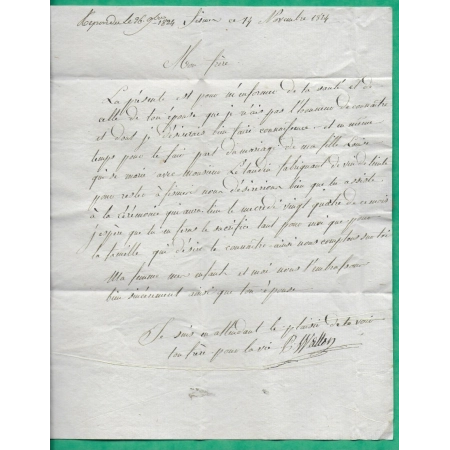 Répondu le 26 9bre 1824 Fismes ce 14 Novembre 1824
Mon frère
La présente est pour m'enformer de ta santé et de
celle de ton épouse que je n'ais pas l'honneur de connaître
et dont je désirerais bien faire connaissance et en même
temps pour te faire part du mariage de ma fille Louise
qui se marie avec Monsieur fabriquant de vin de teinte
pour rester à fismes nous désirerions bien que tu assiste
à la cérémonie qui aura lieu le mercredi vingt quatre du mois
j'espère que tu en feras le sacrifice tant pour moi que pour
la famille qui désire te connaître ainsi nous comptons sur toi
Ma femme mes enfants et moi nous t'embrassons
bien sincèrement ainsi que ton épouse
Je suis en attendant le plaisir de te voir
ton frère pour la vie Wallon